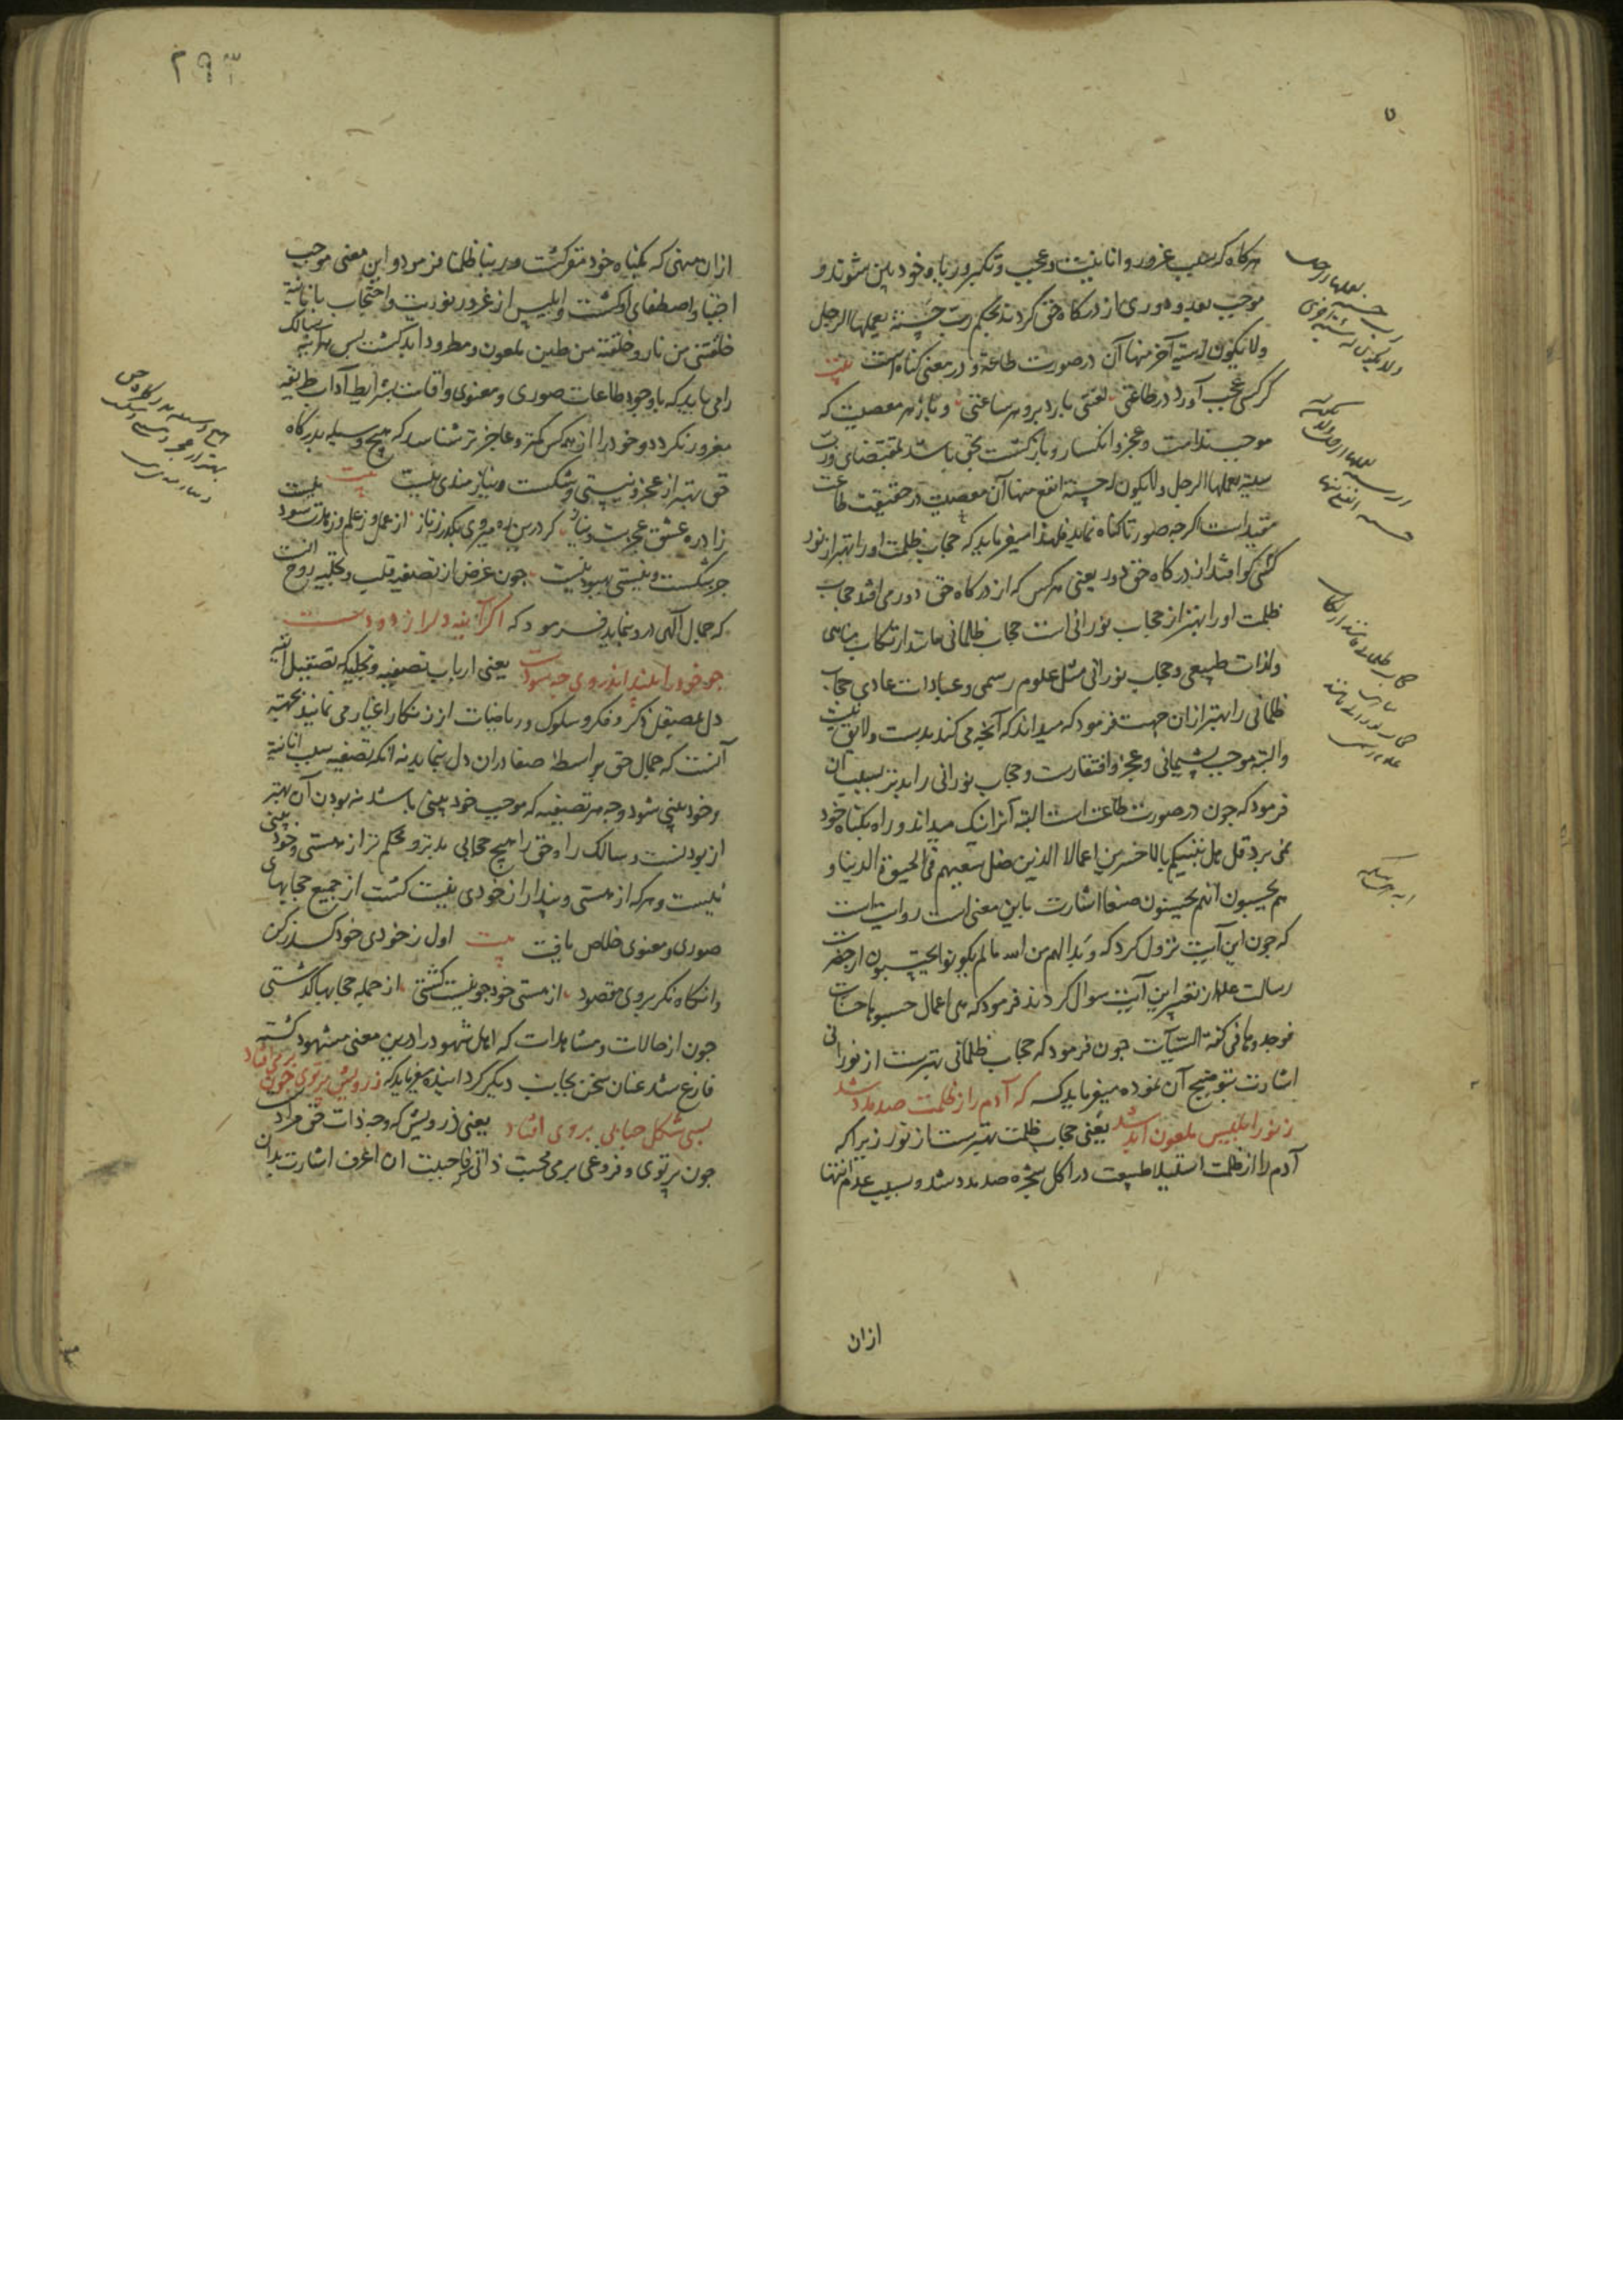 هرگاه که سبب غرور و انانیت و عجب و تکبر و ریا و خود بین شوند و
موجب بعد و دوری از درگاه حق گردند بحکم رب حسنة یعملها الرجل
ولا یکون له سیئة آخر منها آن در صورت طاعة و در معنی گناه است بیت
گر کسی عجب آورد در طاعتی لعنتی بارد برو هر ساعتی و باز هر معصیت که
موجب ندامت و عجز و انکسار و بازگشت بحق باشد بمقتضای و رب
سیئة یعملها الرجل ولا یکون له حسنة انفع منها آن معصیت در حقیقت طاعت
مقید است اگرچه صورتا گناه نماید فلهذا میفرماید که حجاب ظلمت او را بهتر از نور
کسی کو افتد از درگاه حق دور یعنی هر کس که از درگاه حق دور می افتد حجاب
ظلمت او را بهتر از حجاب نورانی است حجاب ظلمانی مانند ارتکاب مناهی
ولذات طبیعی و حجاب نورانی مثل علوم رسمی و عبادات عادی حجاب
ظلمانی را بهتر از آن جهت فرمود که میداند که آنچه می کند بدست و لایق نیست
و البته موجب پشیمانی و عجز و افتقارست و حجاب نورانی را بدتر بسبب آن
فرمود که چون در صورت طاعت است البته آنرا نیک میداند و راه بگناه خود
نمی برد قل هل ننبئکم بالاخسرین اعمالا الذین ضل سعیهم فی الحیوة الدنیا و
هم یحسبون انهم یحسنون صنعا اشارت باین معنی است روایت است
که چون این آیت نزول کرد که و بدا لهم من الله مالم یکونوا یحتسبون از حضرت
رسالت علم از تفسیر این آیت سوال کردند فرمود که هی اعمال حسبوها حسنات
فوجدوها فی کفة السیآت چون فرمود که حجاب ظلمانی بهترست از نورانی
اشارت بتوضیح آن نموده میفرماید که که آدم را ز ظلمت صد مدد شد
ز نور ابلیس ملعون ابد شد یعنی حجاب ظلمت بهترست از نور زیرا که
آدم را از ظلمت استیلا طبیعت در اکل شجره صد مدد شد و بسبب عدم انتها
ازان
از آن منهی که بگناه خود مقر گشت و ربنا ظلمنا فرمود و این معنی موجب
اجتبا و اصطفای او گشت و ابلیس از غرور نوریت و احتجاب بانانیة
خلقتنی من نار و خلقته من طین ملعون و مطرود ابد گشت پس هرآینه سالک
را می باید که باوجود طاعات صوری و معنوی و اقامت بشرایط آداب طریقه
مغرور نگردد و خود را از همه کس کمتر و عاجز تر شناسد که هیچ وسیله بدرگاه
حق بهتر از عجز و نیستی و شکست و نیازمندی نیست بیت
زاد ره عشق عجزست و نیاز گر درین ره میروی بگذر ز ناز از عمل و ز علم و زهدت سود نیست
جز شکست و نیستی بهبود نیست چون غرض از تصفیه قلب و تخلیه روح آنست
که جمال الهی در و نماید فرمود که اگر آینه دل را زدودست
چو خود را بیند اندر وی چه سودست یعنی ارباب تصفیه و تجلیه که تصقیل آینه
دل بمصیقل ذکر و فکر و سلوک و ریاضات از زنگار اغیار می نمایند بجهة
آنست که جمال حق بواسطه صفا در آن دل بنماید نه آنکه تصفیه سبب انانیة
و خود بینی شود و چه هر تصفیه که موجب خود بینی باشد نه بودن آن بهتر
از بودنست و سالک راه حق را هیچ حجابی بدتر و محکم تر از هستی و خود بینی
نیست و هر که از هستی و پندار از خودی نیست گشت از جمیع حجابهای
صوری و معنوی خلاص یافت بیت اول ز خودی خود گذر کن
وانگاه نگر بروی مقصود از هستی خود چو نیست گشتی از جمله حجابها گذشتی
چون از حالات و مشاهدات که اهل شهود را درین معنی مشهود گشته
فارغ شد عنان سخن بجانب دیگر گردانیده میفرماید که ز رویش پرتوی چون بر می افتاد
بسی شکل حبابی بر وی افتاد یعنی ز رویش که وجه ذات حق مرادست
چون پرتوی و فروغی بر می محبت ذاتی فاحببت ان اعرف اشارت بدان